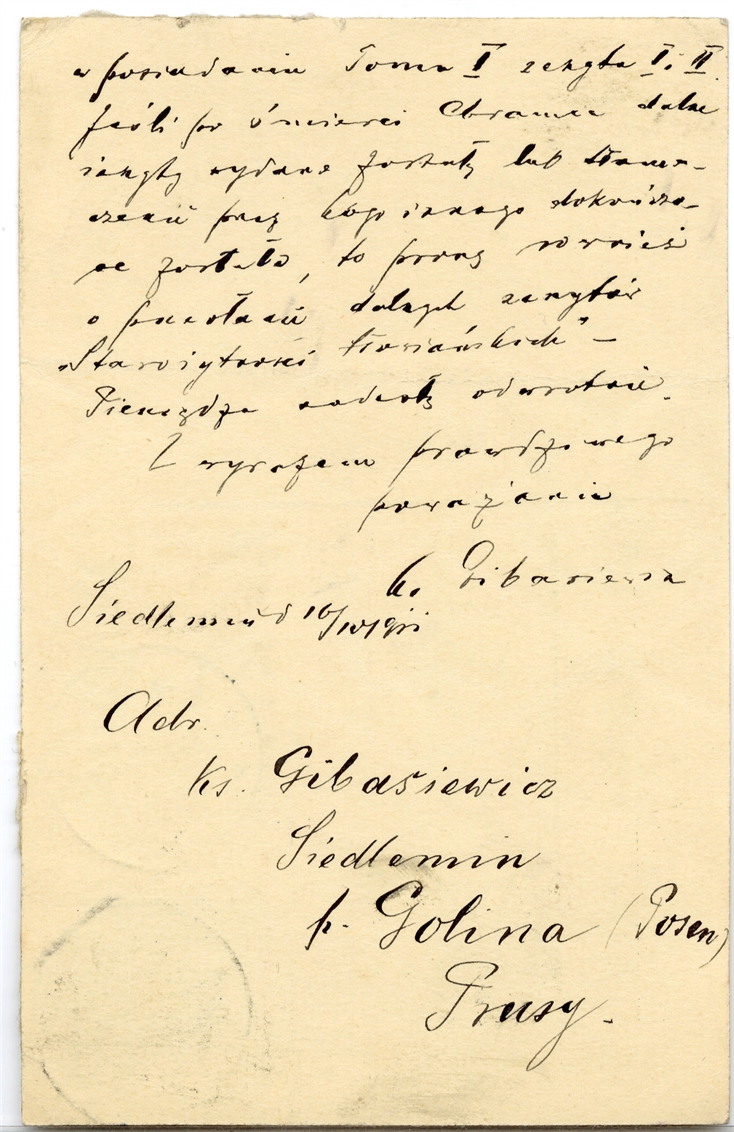 w posiadaniu Tomu I zeszytu I i II.
Jeśli po śmierci Chramca dalsze
zeszyty wydane zostały lub tłuma-
czenie przez kogo innego dokończo-
ne zostało, to proszę również
o przesłanie dalszych zeszytów
„Starożytności Słowiańskich" –
Pieniądze nadeślę odwrotnie.
Z wyrazem prawdziwego
poważania
ks. Gibasiewicz
Siedlemin d 10/
Adr.
Ks. Gibasiewicz
Siedlemin
p. Golina (Posen)
Prusy.